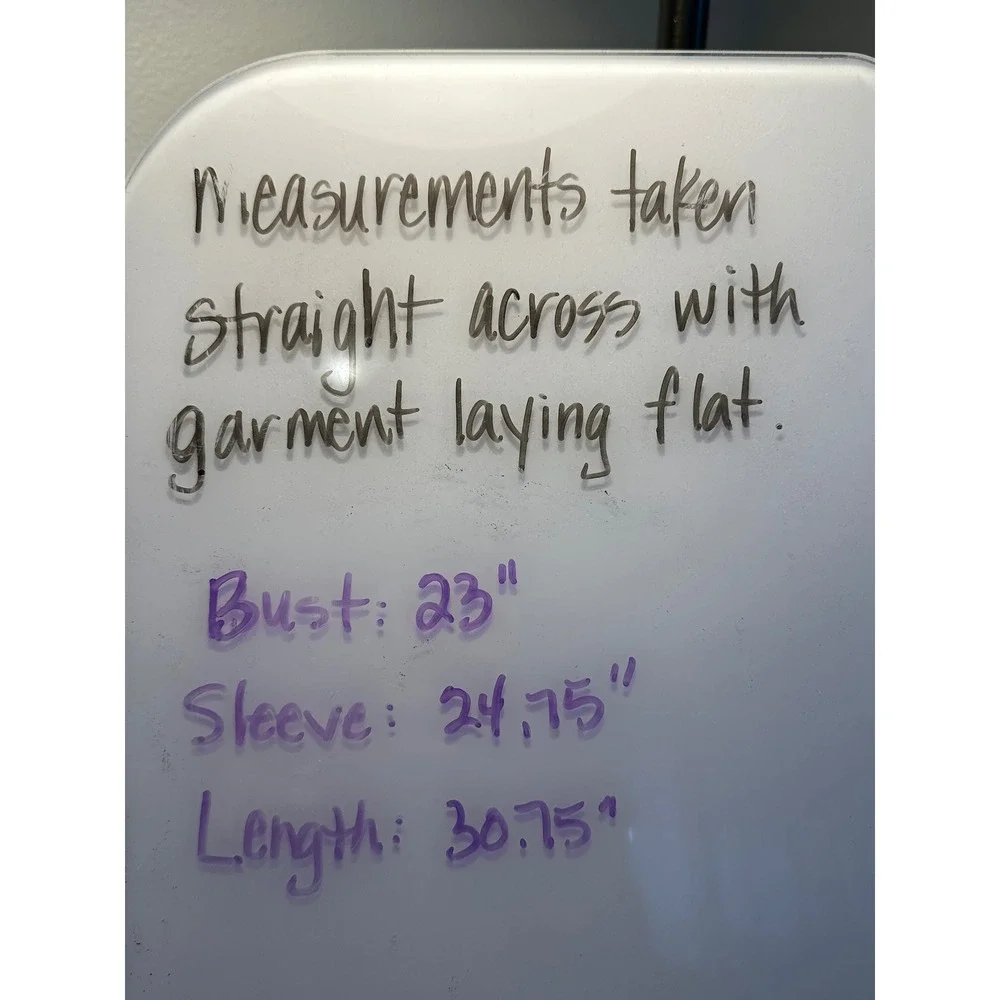 Measurements taken
straight across with
garment laying flat.
Bust: 23"
Sleeve: 24.75"
Length: 30.75"